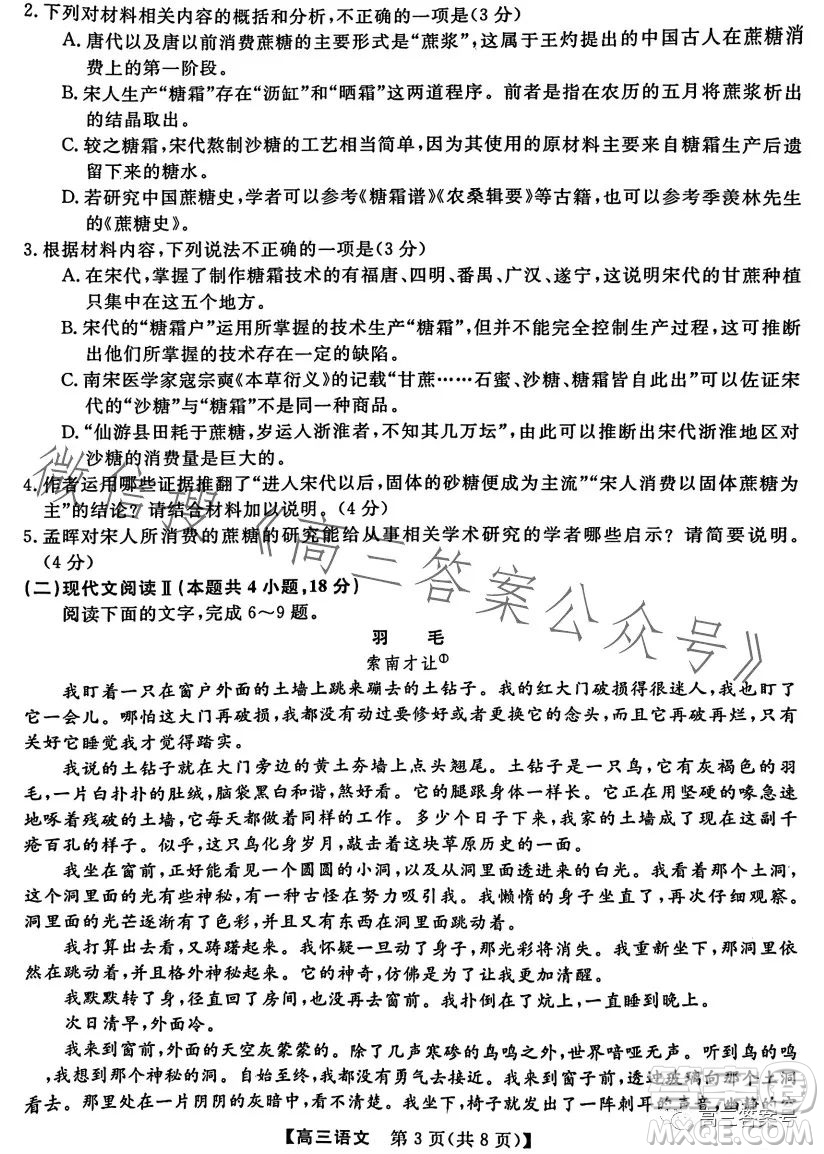 2. 下列对材料相关内容的概括和分析,不正确的一项是(3 分)
A. 唐代以及唐以前消费蔗糖的主要形式是“蔗浆”,这属于王灼指出的中国古人在蔗糖消
费上的第一阶段。
B. 宋人生产“糖霜”存在“沥缸”和“晒霜”这两道程序。前者是指在农历的五月将蔗浆析出
的结晶取出。
C. 较之糖霜,宋代熬制沙糖的工艺相当简单,因为其使用的原材料主要来自糖霜生产后遗
留下来的糖水。
D. 若研究中国蔗糖史,学者可以参考《糖霜谱》《农桑辑要》等古籍,也可以参考季羡林先生
的《蔗糖史》。
3. 根据材料内容,下列说法不正确的一项是(3 分)
A. 在宋代,掌握了制作糖霜技术的有福唐、四明、番禺、广汉、遂宁,这说明宋代的甘蔗种植
只集中在这五个地方。
B. 宋代的“糖霜户”运用所掌握的技术生产“糖霜”,但并不能完全控制生产过程,这可推断
出他们所掌握的技术存在一定的缺陷。
C. 南宋医学家寇宗奭《本草衍义》的记载“甘蔗……石蜜、沙糖、糖霜皆自此出”可以佐证宋
代的“沙糖”与“糖霜”不是同一种商品。
D. “仙游县田耗于蔗糖,岁运入浙淮者,不知其几万坛”,由此可以推断出宋代浙淮地区对
沙糖的消费量是巨大的。
4. 作者运用哪些证据推翻了“进入宋代以后,固体的砂糖便成为主流”“宋人消费以固体蔗糖为
主”的结论?请结合材料加以说明。(4 分)
5. 孟晖对宋人所消费的蔗糖的研究能给从事相关学术研究的学者哪些启示?请简要说明。
(4 分)
(二)现代文阅读Ⅱ(本题共 4 小题,18 分)
阅读下面的文字,完成 6~9 题。
羽 毛
索南才让①
我盯着一只在窗户外面的土墙上跳来蹦去的土钻子。我的红大门破损得很迷人,我又盯了
它一会儿。哪怕这大门再破损,我都没有动过要修好或者更换它的念头,而且它再破再烂,只有
关好它睡觉我才觉得踏实。
我说的土钻子就在大门旁边的黄土夯墙上点头翘尾。土钻子是一种鸟,它有灰褐色的羽
毛,一片白扑扑的肚绒,脑袋黑白相间,煞好看。它的腿跟身体一样长。它正在用坚硬的喙急速
地啄着残破的土墙,它每天都重复着同样的工作。多少个日子下来,我家的土墙成了现在这副千
疮百孔的样子。似乎,这只鸟化身岁月,敲击着这块草原历史的一面。
我坐在窗前,正好能看见一个圆圆的小洞,以及从洞里面透进来的白光。我看着那个土洞,
这个洞里面的光有些神秘,有一种古怪在努力吸引我。我懒惰的身子坐直了,仔细观察。
洞里面的光芒逐渐有了色彩,并且又有东西在洞里面跳动着。
我打算出去看,又踌躇起来。我怀疑一旦动了身子,那光彩将消失。我重新坐下,洞里面依
然在跳动着,并且格外神秘起来。它的神奇,仿佛是为了让我更加清醒。
我默默转了身,径直回了房间,也没有去看窗前。我扑倒在了炕上,一直睡到晚上。
次日清早,外面冷。
我来到窗前,外面的天空灰蒙蒙的。除了几声寒碜的鸟鸣之外,世界喑哑无声。听到鸟的鸣
,我想到了那个神秘的洞。自始至终,我都没有勇气去接近。我来到窗子前,透过玻璃向那个土洞
看去。但是那里处在一片阴阴的灰暗中,看不清楚。我突然听到了一阵刺耳的声音,幽静的空
【高三语文 第 3 页(共 8 页)】
微信搜《高三答案公众号》
高三答案号
MXQE.COM